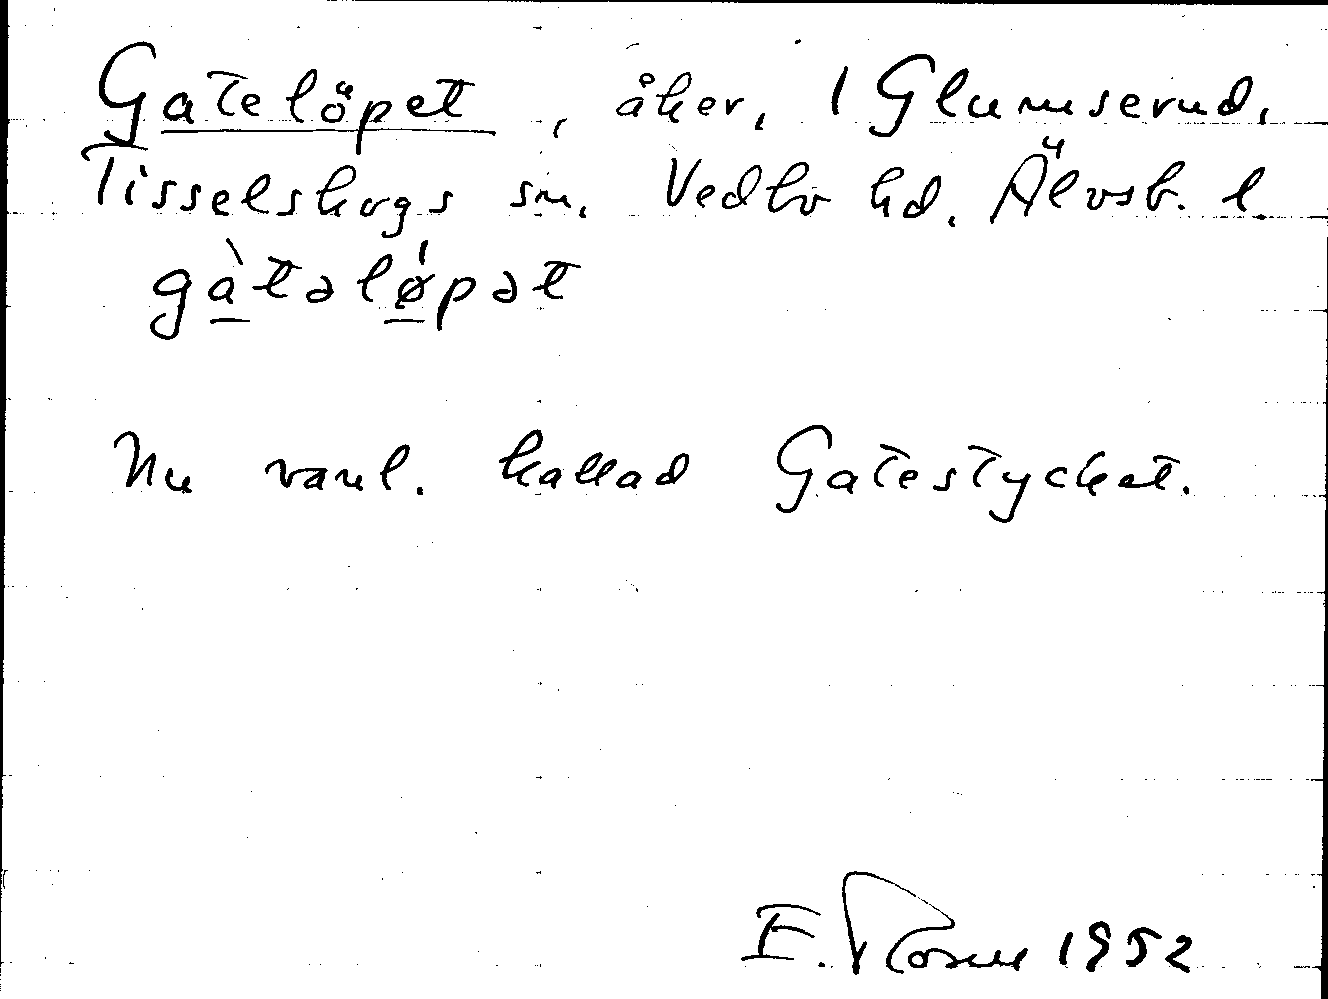 Gatelöpet, åker, 1 Glumserud,
Tisselskogs sn, Vedbo hd. Älvsb. l.
gàtəlǿpət
Nu vanl. kallad Gatestycket.
E. Rosell 1952